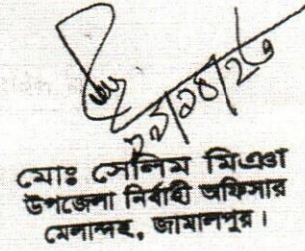 ২১/০৪/২৬
মোঃ সেলিম মিঞা
উপজেলা নির্বাহী অফিসার
মেলান্দহ, জামালপুর।